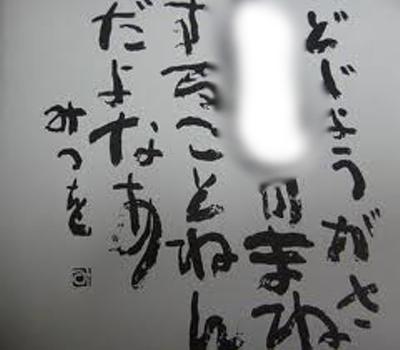 どじょうがさ
まね
することねん
だよなあ
みつを